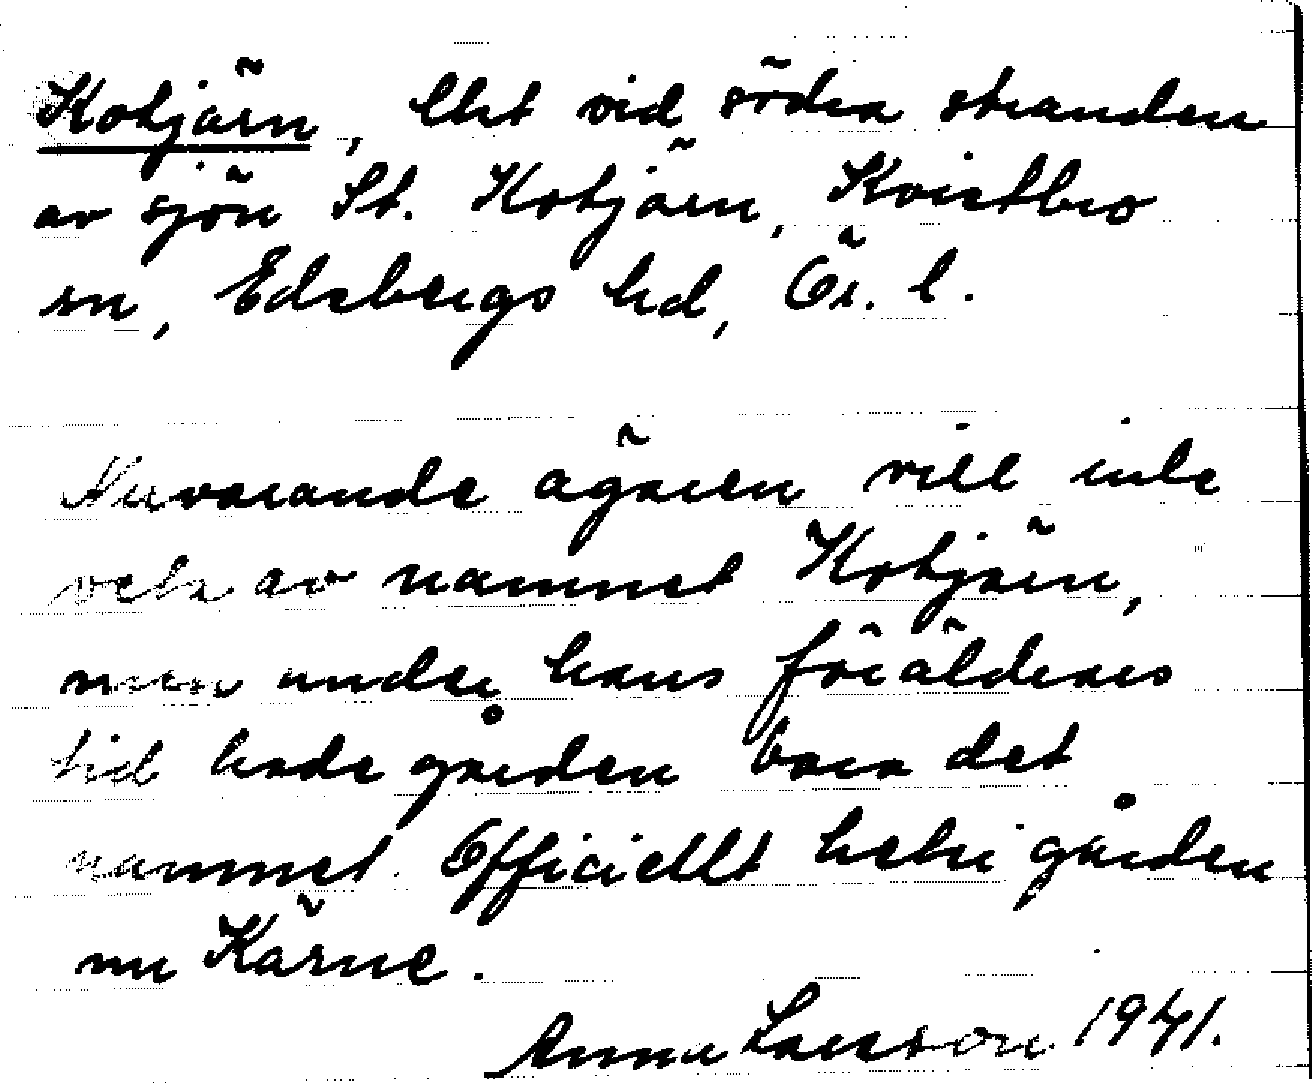 Kotjärn, lht vid södra stranden
av sjön St. Kotjärn, Kvistbro
sn, Edsbergs hd, Ör. l.
Nuvarande ägaren vill inte
veta av namnet Kotjärn,
men under hans föräldrars
tid hade gården bara det
namnet. Officiellt heter gården
nu Kärne.
Anna Larsson 1941.